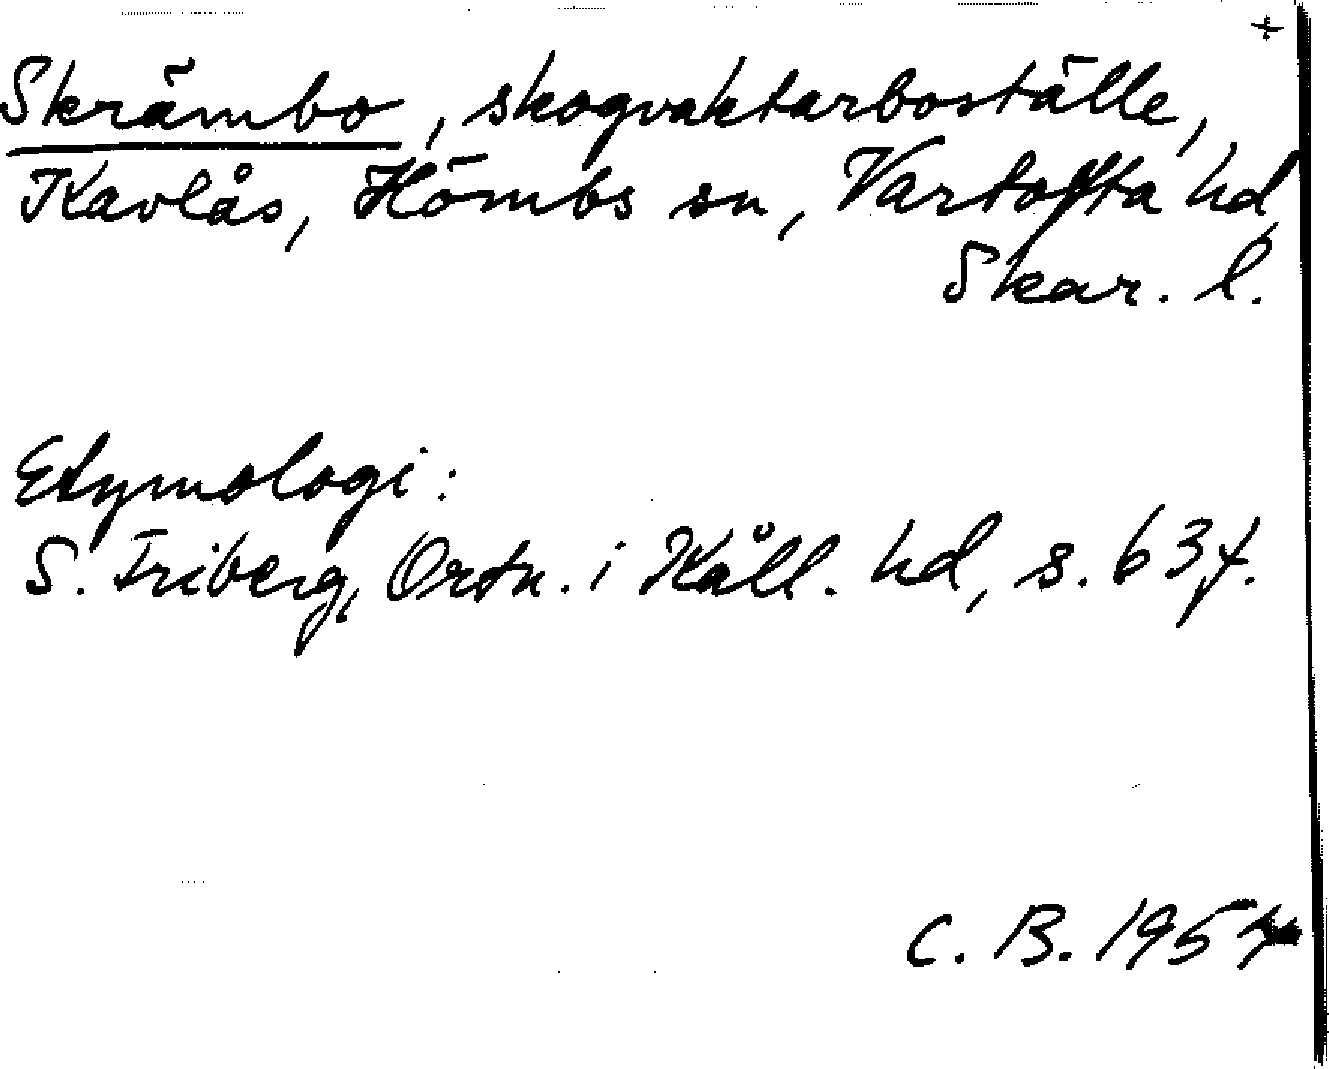 +
Skrämbo, skogvaktarboställe,
Kavlås, Hömbs sn, Vartofta hd,
Skar. l.
Etymologi:
S. Friberg, Ortn. i Kåll. hd, s. 63f.
C. B. 1957